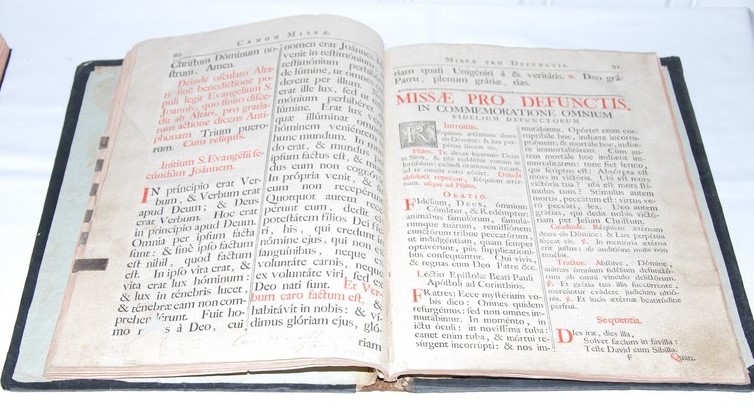 80
CANON MISSÆ.
Chriſtum Dóminum no-
ſtrum. Amen.
Deinde oſculato Alta-
ri, ſine benedictione po-
puli legit Evangelium S.
Joannis, quo finito diſce-
dit ab Altari, pro gratia-
rum actione dicens Anti-
phonam Trium puero-
rum. Cum reliquis.
Initium S. Evangélii ſe-
cúndùm Joánnem.
IN princípio erat Ver-
bum, & Verbum erat
apud Deum; & Deus
erat Verbum. Hoc erat
in princípio apud Deum.
Omnia per ipſum facta
ſunt: & ſine ipſo factum
eſt nihil, quod factum
eſt. In ipſo vita erat, &
vita erat lux hóminum:
& lux in ténebris lucet,
& ténebræ eam non com-
prehendérunt. Fuit ho-
mo missus à Deo, cui
nomen erat Joánnes.
venit in teſtimónium
teſtimónium perhibéret
de lúmine, ut omnes
derent per illum.
erat ille lux, ſed ut
mónium perhibéret
lúmine. Erat lux
quæ illúminat omnem
hóminem veniéntem
hunc mundum. In mun-
do erat, & mundus per
ipſum factus eſt, & mun-
dus eum non cognóvit.
In própria venit, & ſui
eum non recepérunt.
Quotquot autem rece-
pérunt eum, dedit eis
poteſtátem fílios Dei fíe-
ri, his, qui credunt in
nómine ejus, qui non ex
ſanguínibus, neque ex
voluntáte carnis, neque
ex voluntáte viri, ſed ex
Deo nati ſunt. Et Ver-
bum caro factum eſt, &
habitávit in nobis: & ví-
dimus glóriam ejus, gló-
riam
MISSÆ PRO DEFUNCTIS.
81
riam quaſi Unigéniti à & veritátis. ℟. Deo grá-
Patre, plenum grátiæ, tias.
MISSÆ PRO DEFUNCTIS.
IN COMMEMORATIONE OMNIUM
FIDELIUM DEFUNCTORUM
Introitus.
REquiem ætérnam dona
eis Dómine: & lux per-
pétua lúceat eis.
Pſalm. Te decet hymnus Deus
in Sion, & tibi reddétur votum in
Jerúſalem: exáudi oratiónem meam,
ad te omnis caro véniet. Deinde
abſolutè repetitur, Réquiem ætér-
nam. uſque ad Pſalm.
ORATIO.
FIdélium, Deus, ómnium
Cónditor, & Redémptor:
animábus famulórum, famula-
rúmque tuárum, remiſſiónem
cunctórum tríbue peccatórum:
ut indulgéntiam, quam ſemper
optavérunt, piis ſupplicatióni-
bus conſequántur. Qui vivis,
& regnas cum Deo Patre &c.
Léctio Epíſtolæ Beáti Pauli
Apóſtoli ad Corínthios.
FRatres: Ecce myſtérium vo-
bis dico: Omnes quidem
reſurgémus: ſed non omnes im-
mutábimur. In moménto, in
ictu óculi: in novíſſima tuba:
canet enim tuba, & mórtui re-
ſúrgent incorrúpti: & nos im-
mutábimur. Opórtet enim cor-
ruptíbile hoc, indúere incorrup-
tiónem; & mortále hoc, indúe-
re immortalitátem. Cum au-
tem mortále hoc indúerit im-
mortalitátem: tunc fiet ſermo,
qui ſcriptus eſt: Abſórpta eſt
mors in victória. Ubi eſt mors
victória tua? ubi eſt mors ſti-
mulus tuus? Stímulus autem
mortis, peccátum eſt: virtus ve-
rò peccáti, lex. Deo autem
grátias, qui dedit nobis victó-
riam per Jeſum Chriſtum.
Graduale. Réquiem ætérnam
dona eis Dómine: & Lux perpétua
lúceat eis. ℣. In memória ætérna
erit juſtus: ab auditióne mala non
timébit.
Tractus. Abſólve, Dómine,
ánimas ómnium fidélium defunctó-
rum ab omni vínculo delictórum.
℣. Et grátia tua illis ſuccurrénte,
mereántur evádere judícium ultió-
nis. ℣. Et lucis ætérnæ beatitúdine
pérfrui.
Sequentia.
DIes iræ, dies illa,
Solvet ſæclum in favílla:
Teſte David cum Sibílla.
F
Quan-